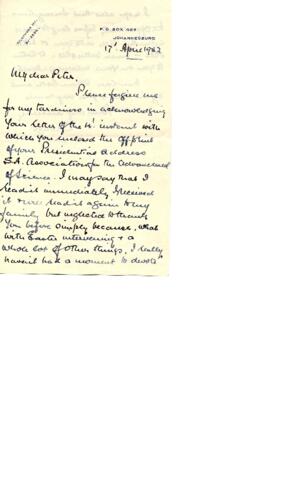 P.O. BOX 1168
JOHANNESBURG
17 April 1962
My dear Peter,
Please forgive me
for my tardiness in acknowledging
your letter of the instant with
which you enclosed the offprint
of your Presidential address
S.A. Association for the Advancement
of Science. I may say that I
read it immediately I received
it & re read it again to my
family but neglected to thank
you before simply because, what
with Easter intervening & a
whole lot of other things, I really
haven't had a moment to devote